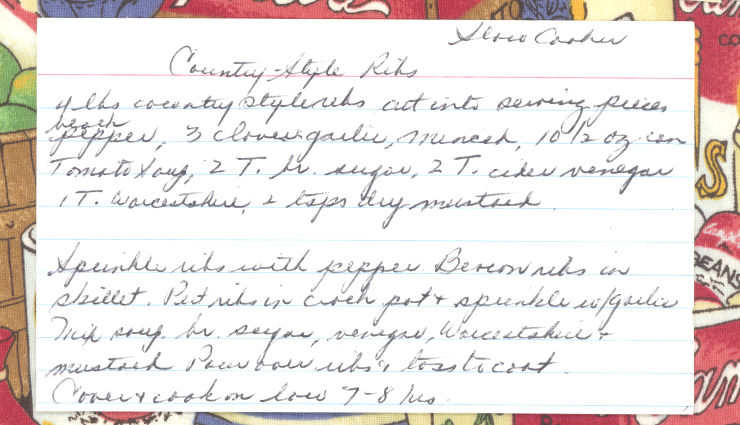 Slow Cooker
Country-Style Ribs
4 lbs country style ribs cut into serving pieces
black
pepper, 3 cloves garlic, minced, 10 1/2 oz can
Tomato Soup, 2 T. br. sugar, 2 T. cider venegar
1 T. Worcestshire, 2 tsps dry mustard
Sprinkle ribs with pepper. Brown ribs in
skillet. Put ribs in crock pot + sprinkle w/garlic
Mix soup, br. sugar, venegar, Worcestshire +
mustard Pour over ribs & toss to coat.
Cover + cook on low 7-8 hrs.
CO
S
BEANS